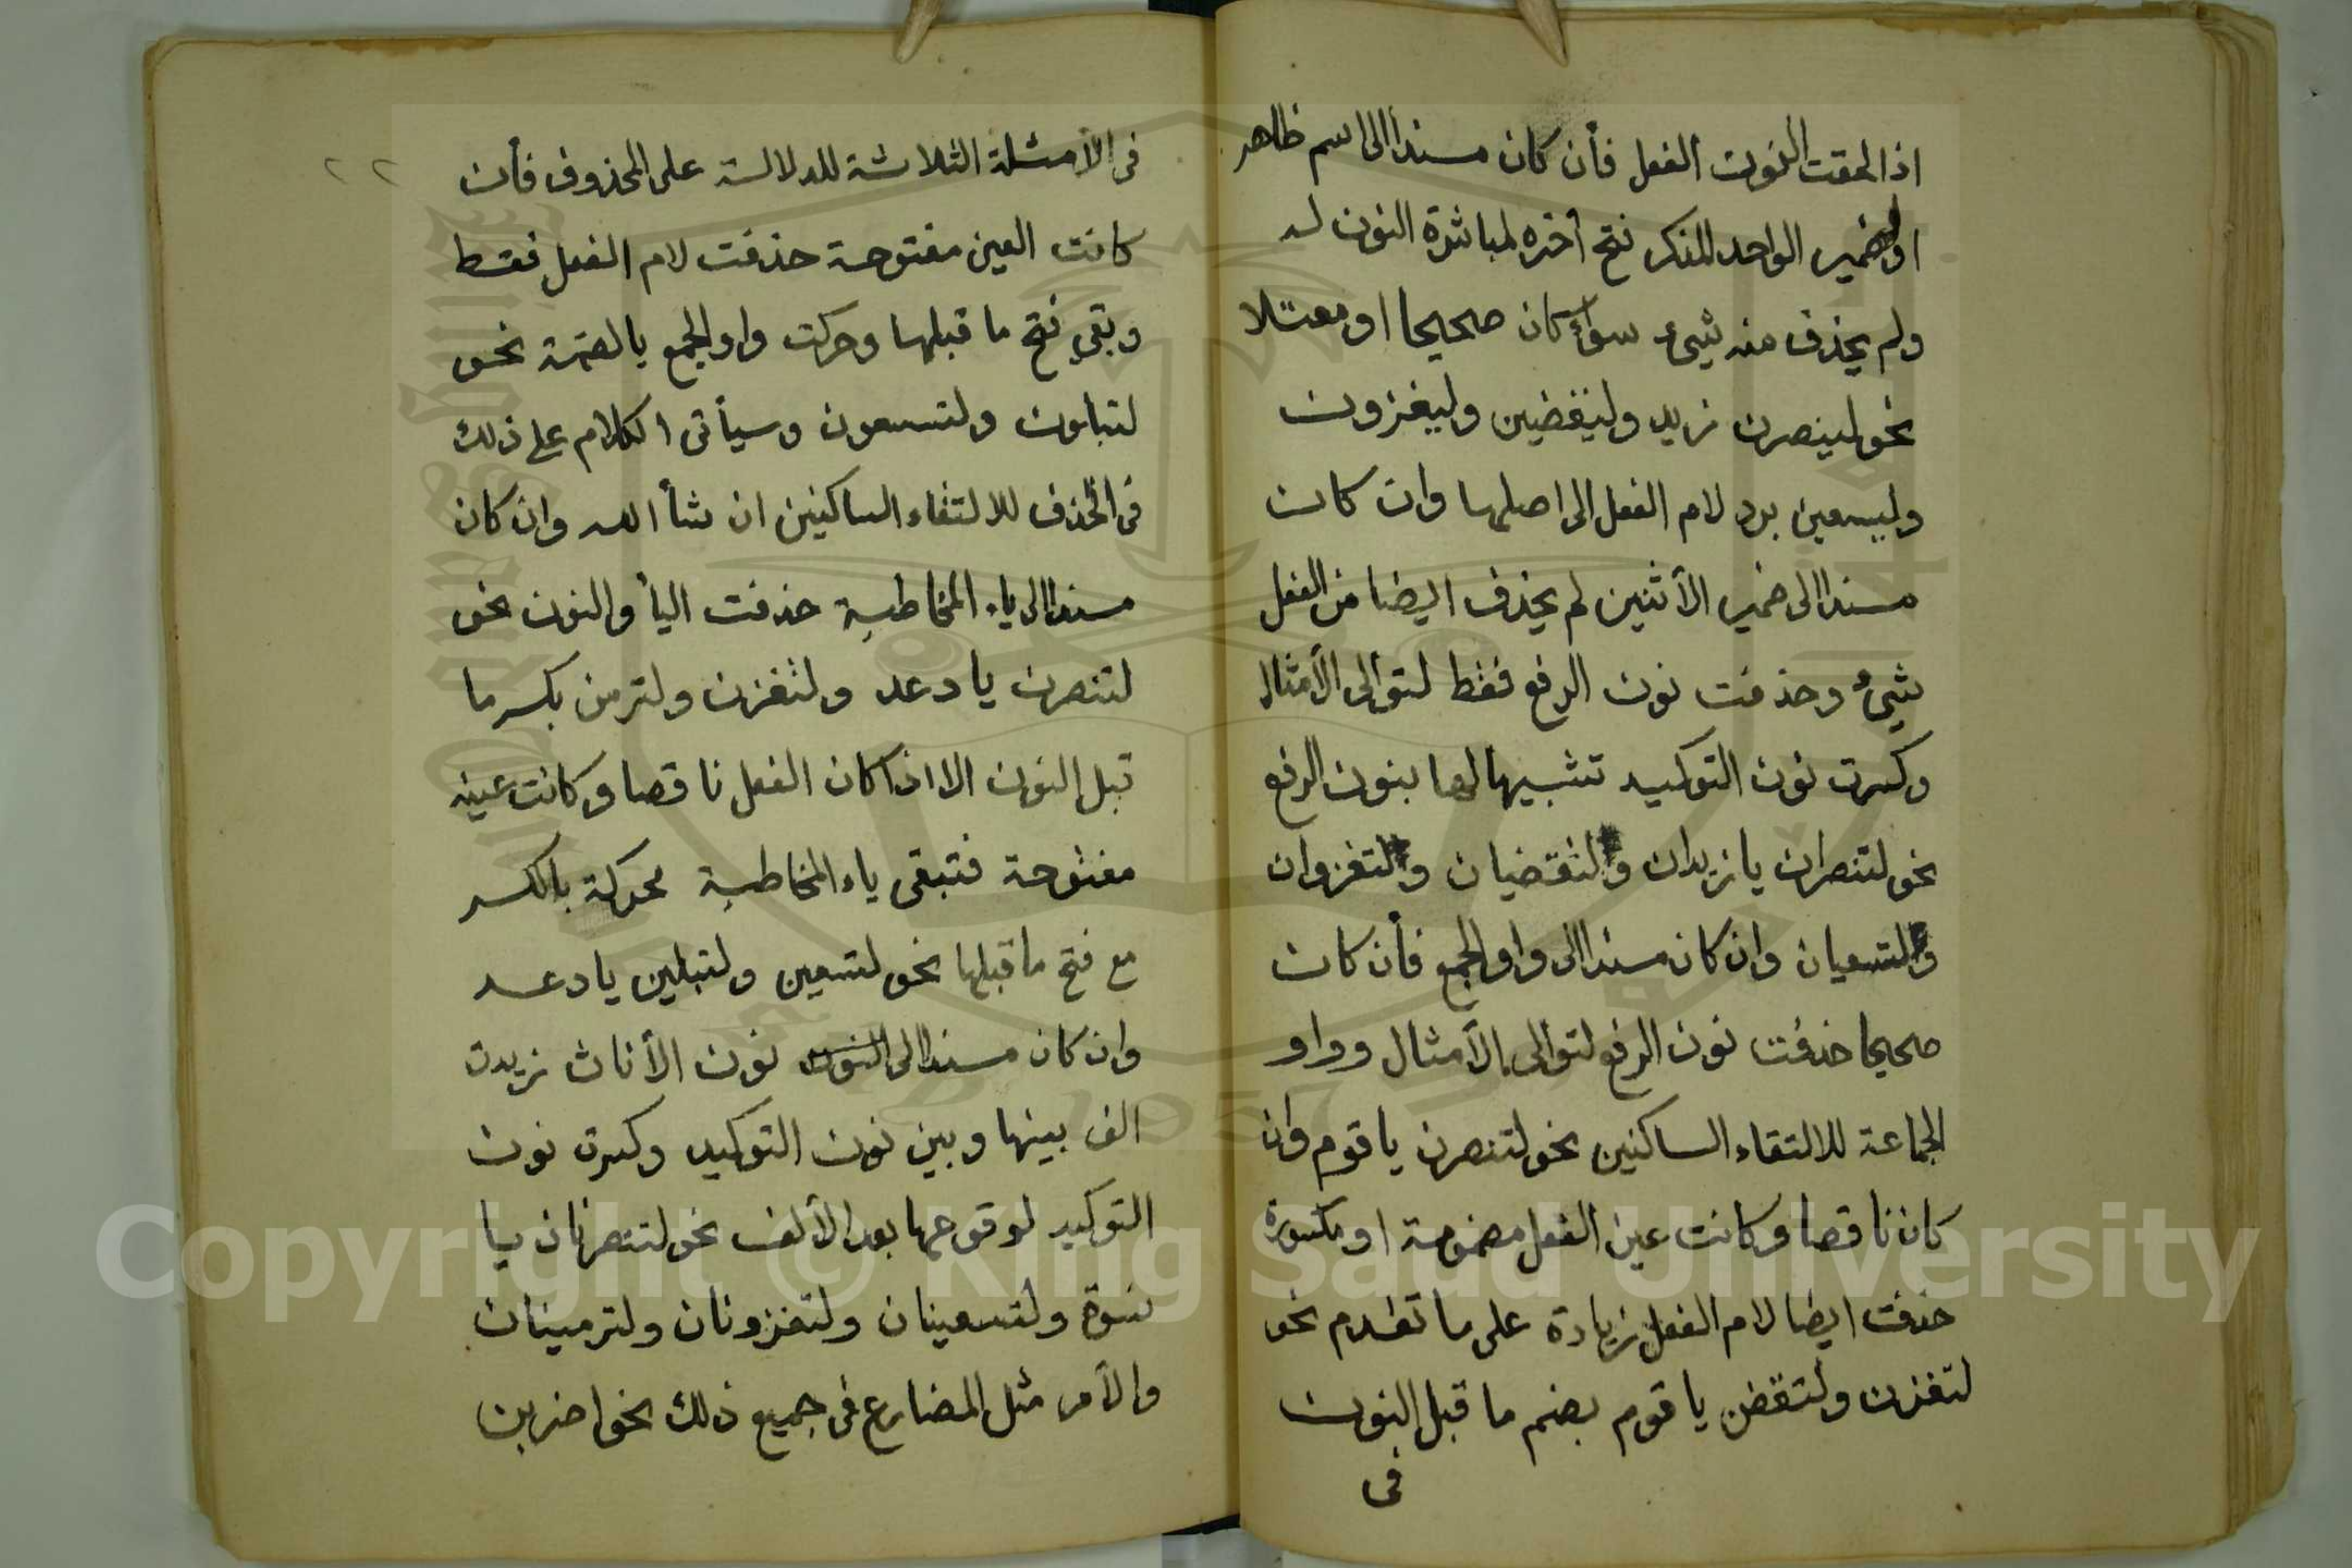 اذا لحقت النون الفعل فأن كان مسندا الى اسم ظاهر
او ضمير الواحد المذكر فتح أخره لمباشرة النون له
ولم يحذف منه شيئ سواء كان صحيحا او معتلا
نحو لينصرن زيد وليقضين وليغزون
وليسعين برد لام الفعل الى اصلها وان كان
مسندا الى ضمير الأثنين لم يحذف ايضا من الفعل
شيئ وحذفت نون الرفع فقط لتوالى الأمثال
وكسرت نون التوكيد تشبيها لها بنون الرفع
نحو لتنصران يا زيدان ولتقضيان ولتغزوان
ولتسعيان وان كان مسندا الى واو الجمع فأن كان
صحيحا حذفت نون الرفع لتوالى الأمثال وواو
الجماعة للالتقاء الساكنين نحو لتنصرن يا قوم وان
كان ناقصا وكانت عين الفعل مضمومة او مكسورة
حذفت ايضا لام الفعل زيادة على ما تقدم نحو
لتغزن ولتقضن يا قوم بضم ما قبل النون
فى
٢٢
فى الأمثلة الثلاثة للدلالة على المحذوف فأن
كانت العين مفتوحة حذفت لام الفعل فقط
وبقى فتح ما قبلها وحركت واو الجمع بالضمة نحو
لتبلون ولتسعون وسيأتى الكلام على ذلك
فى الحذف للالتقاء الساكنين ان شأ الله وان كان
مسندا الى ياء المخاطبة حذفت اليأ والنون نحو
لتنصرن يا دعد ولتغزن ولترمن بكسر ما
قبل النون الا اذا كان الفعل ناقصا وكانت عينه
مفتوحة فتبقى ياء المخاطبة محركة بالكسر
مع فتح ما قبلها نحو لتسعين ولتبلين يا دعد
وان كان مسندا الى النون نون الأناث زيدت
الف بينها وبين نون التوكيد وكسرت نون
التوكيد لوقوعها بعد الألف نحو لتنصرنان يا
نسوة ولتسعينان ولتغزونان ولترمينان
والأمر مثل المضارع فى جميع ذلك نحو اضربن
Copyright © King Saud University